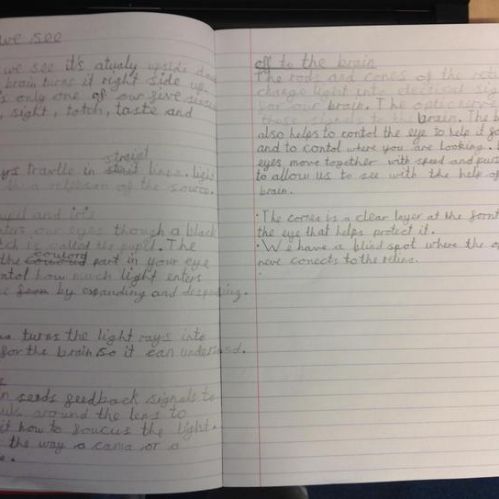 we see
we see it's atualy upside dow
brain turns it right side up.
s only one of our five
, sight, totch, taste and
ys travlle in straigt lines. light
in a of the source.
upil and iris
nters our eyes though a black
tch is called its pupil. The
the coulord part in your eye
ntol how much light enters
by expanding and
turns the light rays into
for the brain so it can undersad.
n seeds feedback signals to
around the lens to
it how to foucus the light.
the way a cama or a
off to the brain
The rods and cones of the ret
change light into electrical sig
for our brain. The optic nerve
these signals to the brain. The b
also helps to contol the eye to help it fo
and to contol where you are looking.
eyes move together with speed and
to allow us to see with the help of
brain.
· The cornea is a clear layer at the foront
the eye that helps protect it.
· We have a blind spot where the op
nerve conects to the retina.